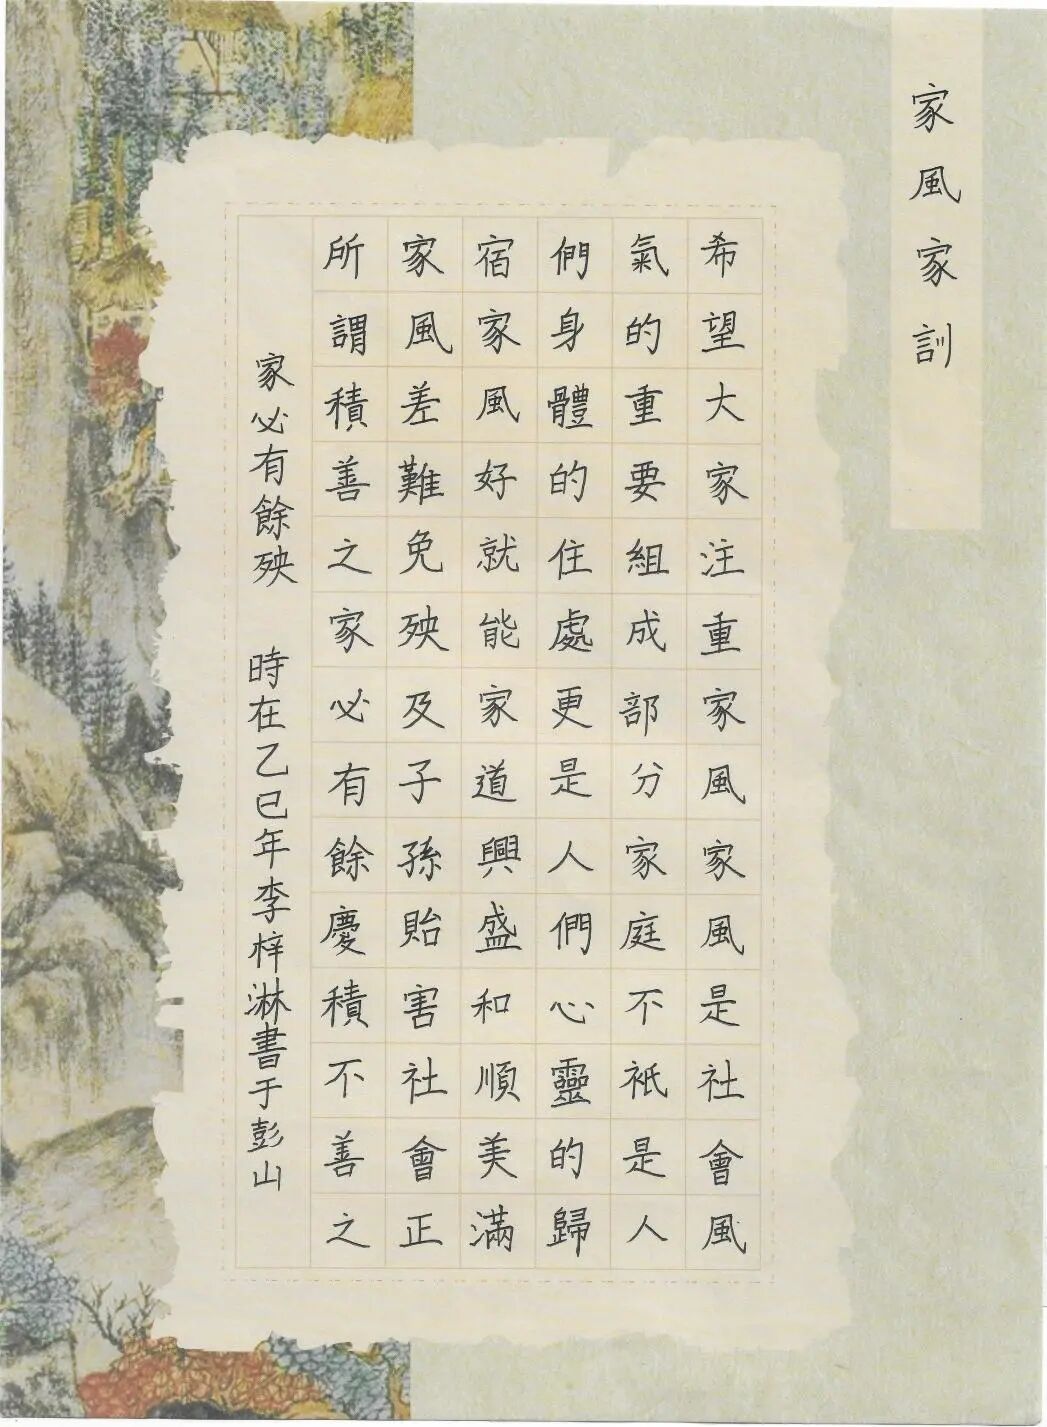 家風家訓
希望大家注重家風家風是社會風
氣的重要組成部分家庭不衹是人
們身體的住處更是人們心靈的歸
宿家風好就能家道興盛和順美滿
家風差難免殃及子孫貽害社會正
所謂積善之家必有餘慶積不善之
家必有餘殃 時在乙巳年李梓淋書于彭山